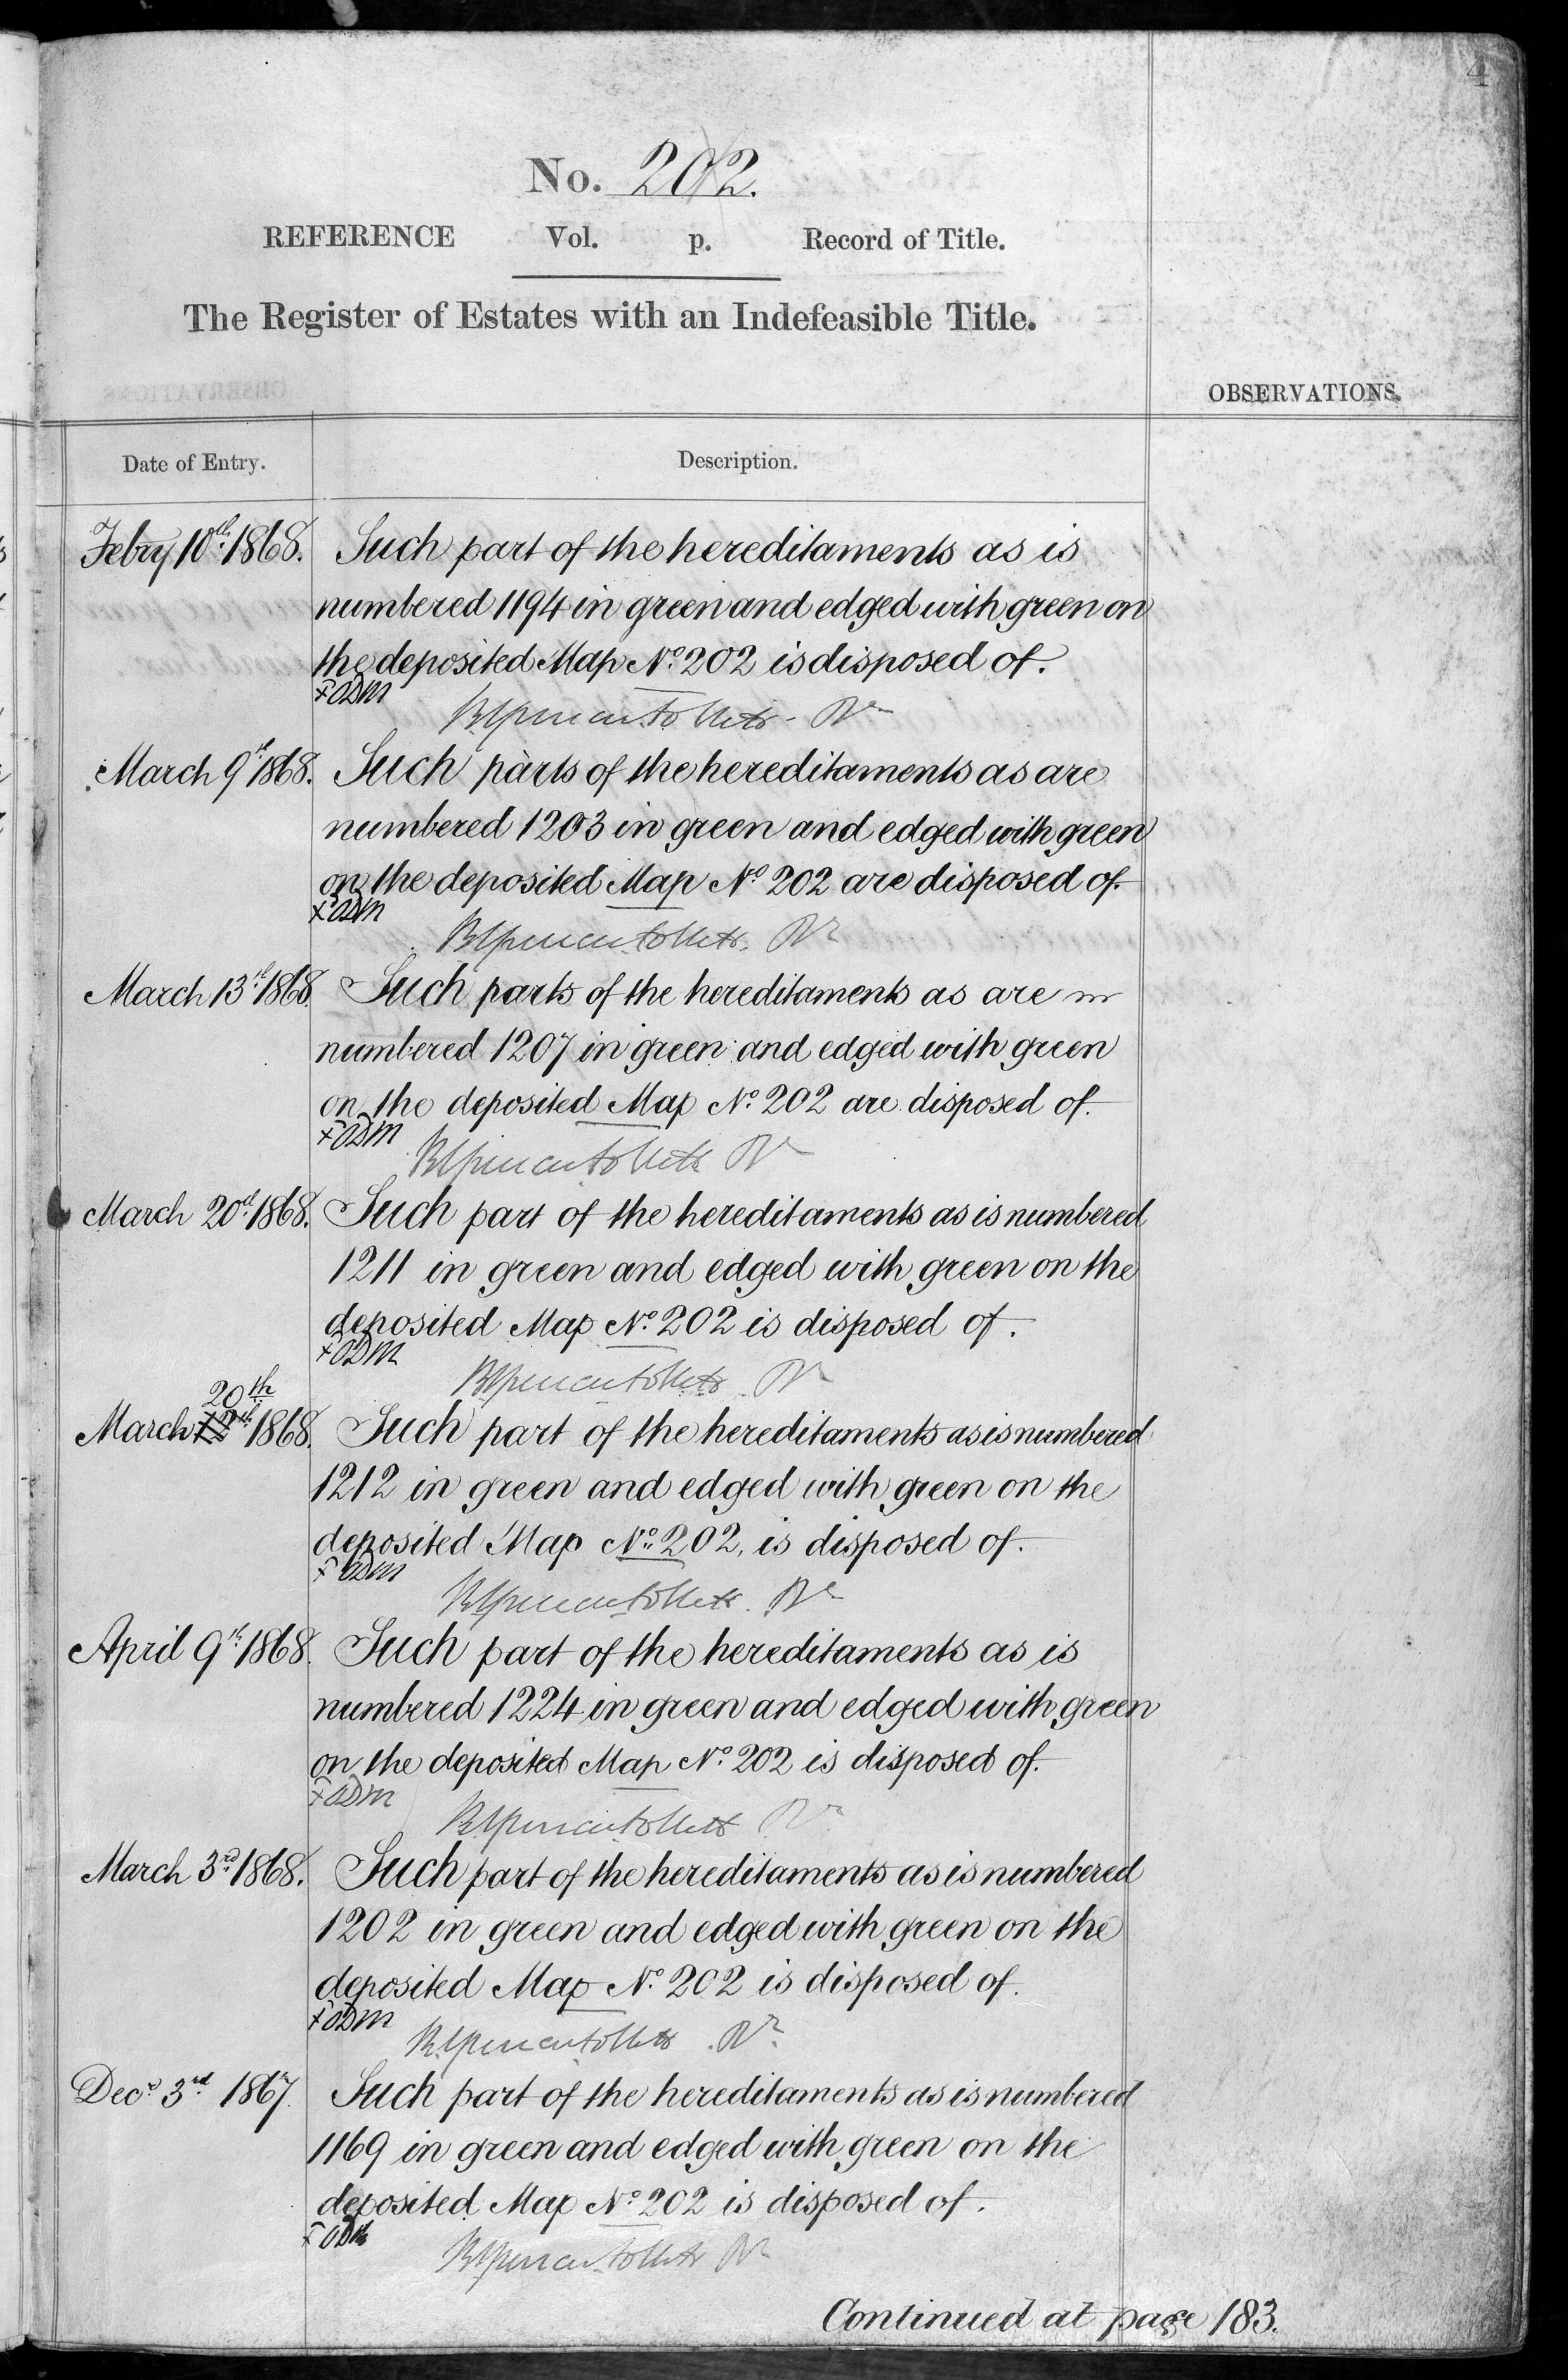 4
No. 202.
REFERENCE Vol. p. Record of Title.
The Register of Estates with an Indefeasible Title.
OBSERVATIONS.
Date of Entry. Description.
Febry 10th 1868. Such part of the hereditaments as is
numbered 1194 in green and edged with green on
the deposited Map No. 202 is disposed of.
March 9th 1868. Such parts of the hereditaments as are
numbered 1203 in green and edged with green
on the deposited Map No. 202 are disposed of.
March 13th 1868. Such parts of the hereditaments as are
numbered 1207 in green and edged with green
on the deposited Map No. 202 are disposed of.
March 20th 1868. Such part of the hereditaments as is numbered
1211 in green and edged with green on the
deposited Map No. 202 is disposed of.
20th
March 1868. Such part of the hereditaments as is numbered
1212 in green and edged with green on the
deposited Map No. 202, is disposed of.
April 9th 1868. Such part of the hereditaments as is
numbered 1224 in green and edged with green
on the deposited Map No. 202 is disposed of.
March 3rd 1868. Such part of the hereditaments as is numbered
1202 in green and edged with green on the
deposited Map No. 202 is disposed of.
Decr 3rd 1867. Such part of the hereditaments as is numbered
1169 in green and edged with green on the
deposited Map No. 202 is disposed of.
Continued at page 183.